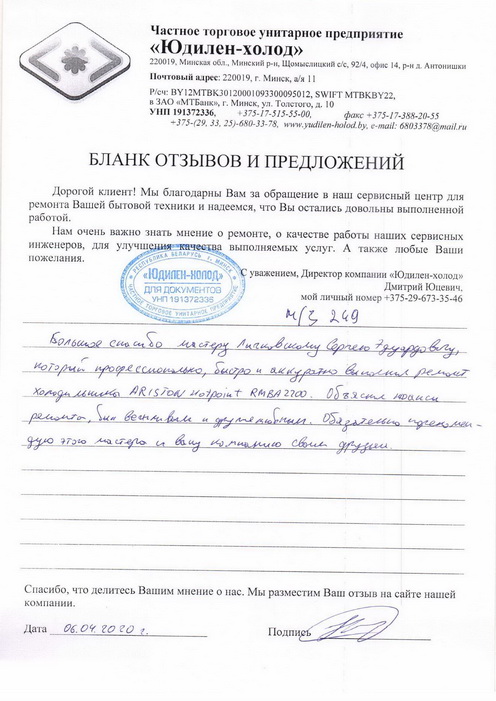 Частное торговое унитарное предприятие
«Юдилен-холод»
220019, Минская обл., Минский р-н, Щомыслицкий с/с, 92/4, офис 14, р-н д. Антонишки
Почтовый адрес: 220019, г. Минск, а/я 11
Р/сч: BY12MTBK30120001093300095012, SWIFT MTBKBY22,
в ЗАО «МТБанк», г. Минск, ул. Толстого, д. 10
УНП 191372336, +375-17-515-55-00, факс +375-17-388-20-55
+375-(29, 33, 25)-680-33-78, www.yudilen-holod.by, e-mail: 6803378@mail.ru
БЛАНК ОТЗЫВОВ И ПРЕДЛОЖЕНИЙ
Дорогой клиент! Мы благодарны Вам за обращение в наш сервисный центр для
ремонта Вашей бытовой техники и надеемся, что Вы остались довольны выполненной
работой.
Нам очень важно знать мнение о ремонте, о качестве работы наших сервисных
инженеров, для улучшения качества выполняемых услуг. А также любые Ваши
пожелания.
С уважением, Директор компании «Юдилен-холод»
Дмитрий Юцевич.
мой личный номер +375-29-673-35-46
РЕСПУБЛИКА БЕЛАРУСЬ Г. МИНСК
«ЮДИЛЕН-ХОЛОД»
ДЛЯ ДОКУМЕНТОВ
УНП 191372336
ЧАСТНОЕ ТОРГОВОЕ УНИТАРНОЕ ПРЕДПРИЯТИЕ
249
Большое спасибо мастеру Личковскому Сергею Эдуардовичу,
который профессионально, быстро и аккуратно выполнил ремонт
холодильника ARISTON Hotpoint RMBA2200. Объяснил нюансы
ремонта, был вежливым и дружелюбным. Обязательно порекомен-
дую этого мастера и вашу компанию своим друзьям.
Спасибо, что делитесь Вашим мнение о нас. Мы разместим Ваш отзыв на сайте нашей
компании.
Дата 06.04.2020 г. Подпись